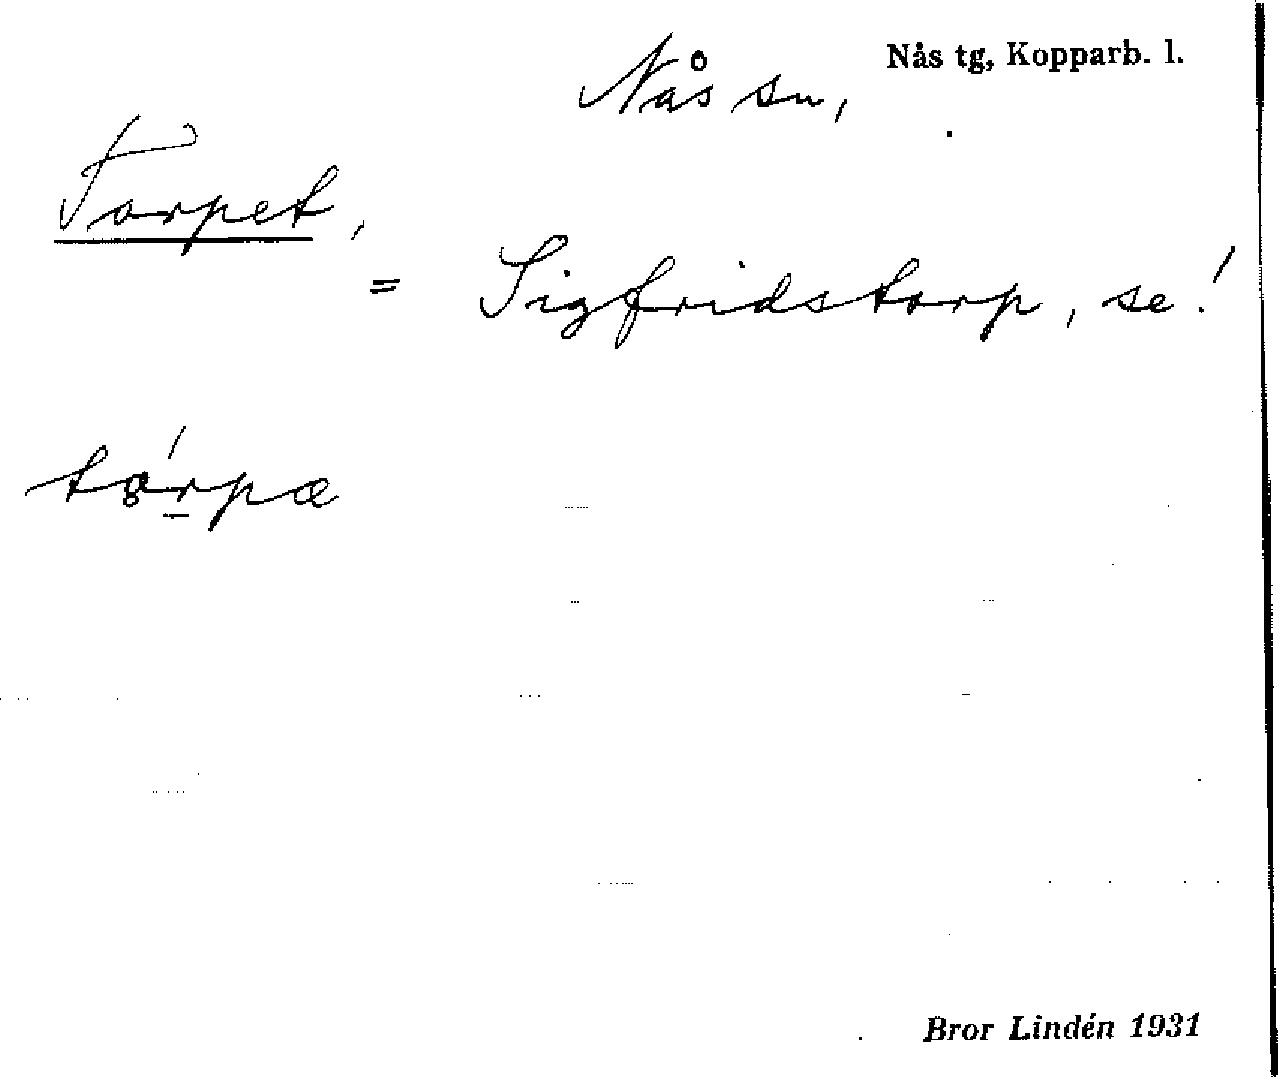 Nås sn, Nås tg, Kopparb. l.
Torpet,
= Sigfridstorp, se!
tɷ́rpæ
Bror Lindén 1931